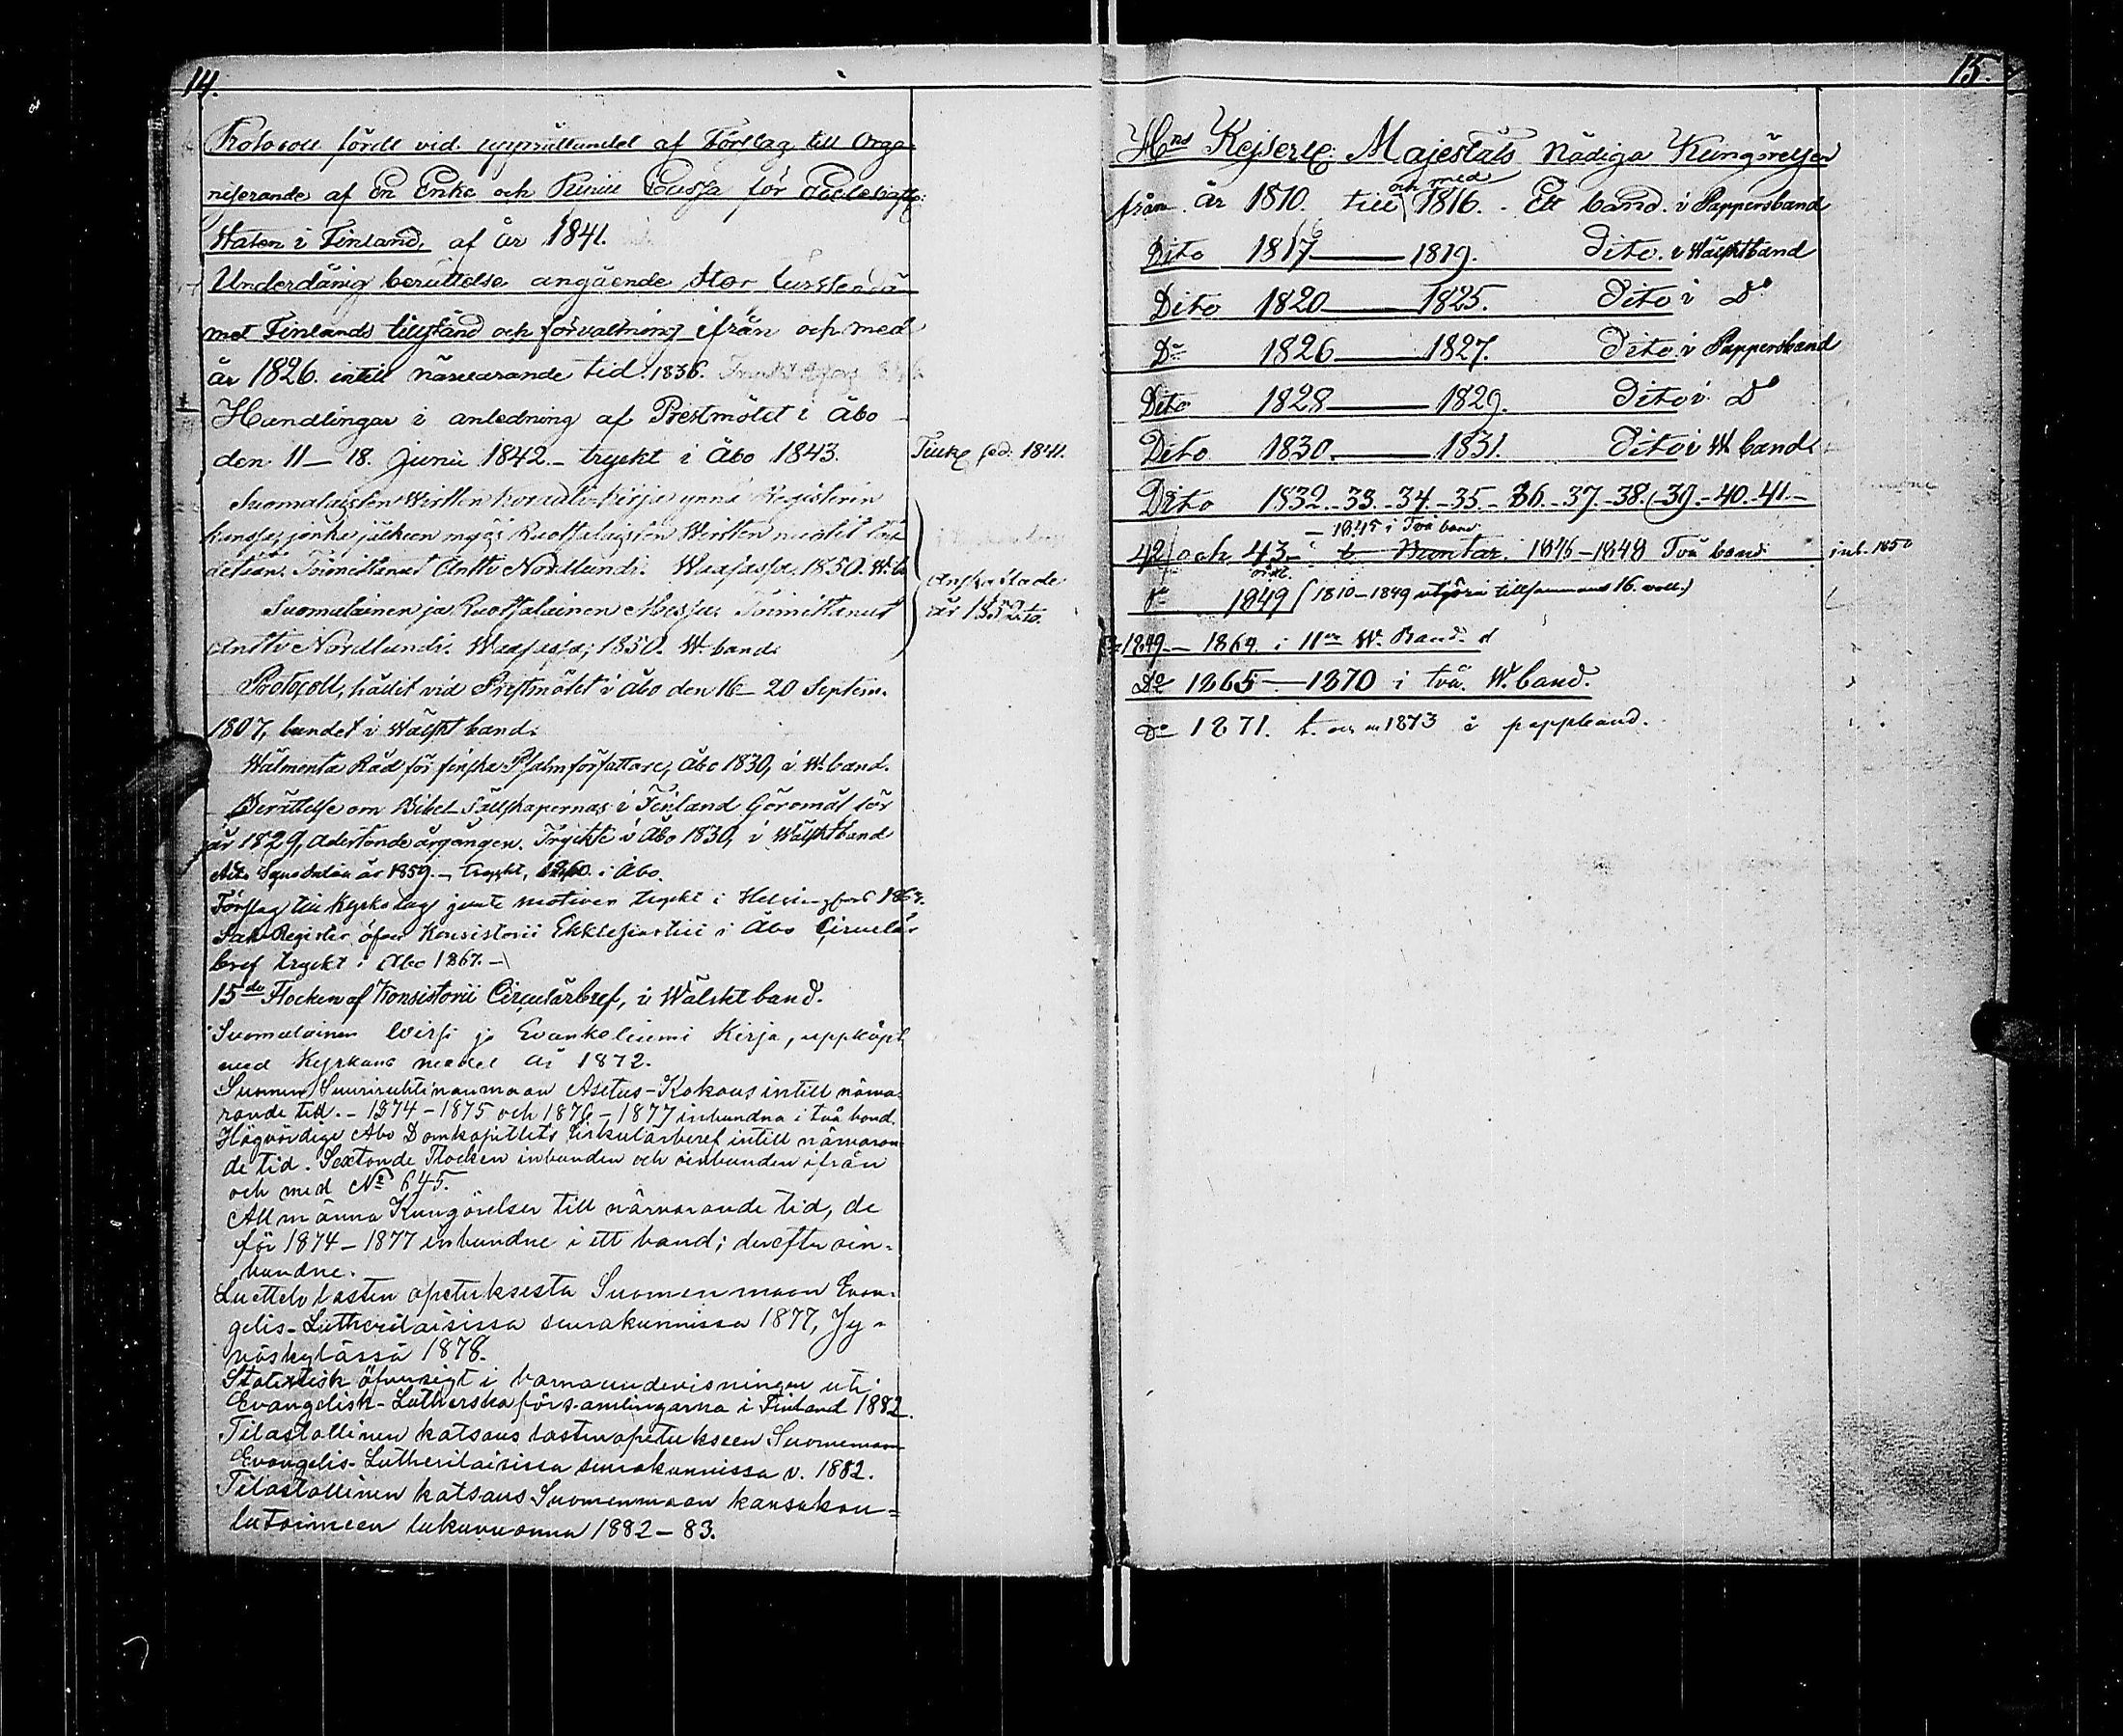 14.
Protocoll fördt vid upprättandet af Förslag till Orga-
niserande af En Enke och Pupill Cassa för Ecclesiastiq
Staten i Finland, af år 1841.
Underdånig berättelse angående Stor Furstendö-
met Finlands tillstånd och förvaltning ifrån och med
år 1826. intill närvarande tid. 1836.
Handlingar i anledning af Prestmötet i Åbo
den 11 – 18. Junii 1842. – tryckt i Åbo 1843.
Suomalaisten Wirtten Koraali-Kirja ynnä Registerin
kanssa, jonka jälkeen myös Ruottalaisten Wirtten nuotit
Toimittanut Antti Nordlundi. Waasassa, 1850. W. b.
Suomalainen ja Ruottalainen Messu. Toimittanut
Antti Nordlundi. Waasassa; 1850. W. band.
Protocoll, hållit vid Prestmötet i Åbo den 16 – 20 Septem.
1807, bundet i Wälskt band.
Wälmenta Råd för finska Psalmförfattare, Åbo 1830, i W. band.
Berättelse om Bibel-Sällskapernas i Finland Göromål för
år 1829, adertonde årgången. Tryckte i Åbo 1830, i Wälskt band
år 1859. – tryckt, 1860. i Åbo.
Förslag till Kyrko lag jemte motiver tryckt i Helsingfors
Sak-Register öfver Konsistorii Ekklesiastici i Åbo Circulär
bref tryckt i Åbo 1867. –
15de Flocken af Konsistorii Circulärbref, i Wälskt band.
Suomalainen Wirsi ja Evankeliumi Kirja, uppköpt
med Kyrkans medel år 1872.
Suomen Suuriruhtinanmaan Asetus-Kokous intill närva-
rande tid. – 1874 – 1875 och 1876 – 1877 inbundna i två band.
Högvördige Åbo Domkapitlets Cirkulärbref intill närvaran-
de tid. Sextonde Flocken inbunden och oinbunden ifrån
och med No 645.
Allmänna Kungörelser till närvarande tid, de
för 1874 – 1877 inbundne i ett band; derefter oin-
bundne.
Luettelo lasten opetuksesta Suomenmaan Evan-
gelis-Lutherilaisissa seurakunnissa 1877, Jy-
väskylässä 1878.
Statistisk öfversigt i barnaundervisningen uti
Evangelisk-Lutherska församlingarna i Finland 1882.
Tilastollinen katsaus lastenopetukseen Suomenmaan
Evangelis-Lutherilaisissa seurakunnissa v. 1882.
Tilastollinen katsaus Suomenmaan kansakou-
lutoimeen lukuvuonna 1882 – 83.
1841.
Anskaffade
år 1852
15.
Hns Kejserlig Majestäts Nådiga Kungörelser
från år 1810. till och med 1816. – Ett band. i Pappersband
Dito 1817 – 1819. Dito. i Wälsktband
Dito 1820 – 1825. Dito i Do
Do 1826 – 1827. Dito i Pappersband
Dito 1828 – 1829. Dito i Do
Dito 1830 – 1831. Dito i W. band.
Dito 1832. – 33. – 34. – 35 – 36. – 37. – 38. – 39. – 40. – 41. –
– 1845 i Två band
42 och 43 – i 6 Buntar. 1846 – 1848 Två band inb. 1850
Do 1849 (1810 – 1849 utgöra tillsammans 16. voll.)
Do 1849 – 1869 i 11 W. Band.
Do 1865 – 1870 i två. W. band.
Do 1871. t. o m 1873 i pappband.